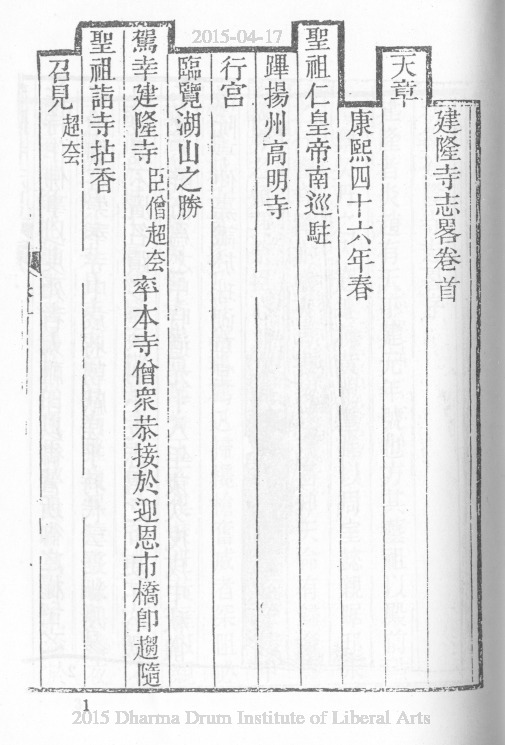 2015-04-17
建隆寺志畧卷首
天章
康熙四十六年春
聖祖仁皇帝南巡駐
蹕揚州高明寺
行宮
臨覽湖山之勝
駕幸建隆寺臣僧超奩率本寺僧衆恭接於迎恩市橋卽趨隨
聖祖詣寺拈香
召見超奩
1
2015 Dharma Drum Institute of Liberal Arts